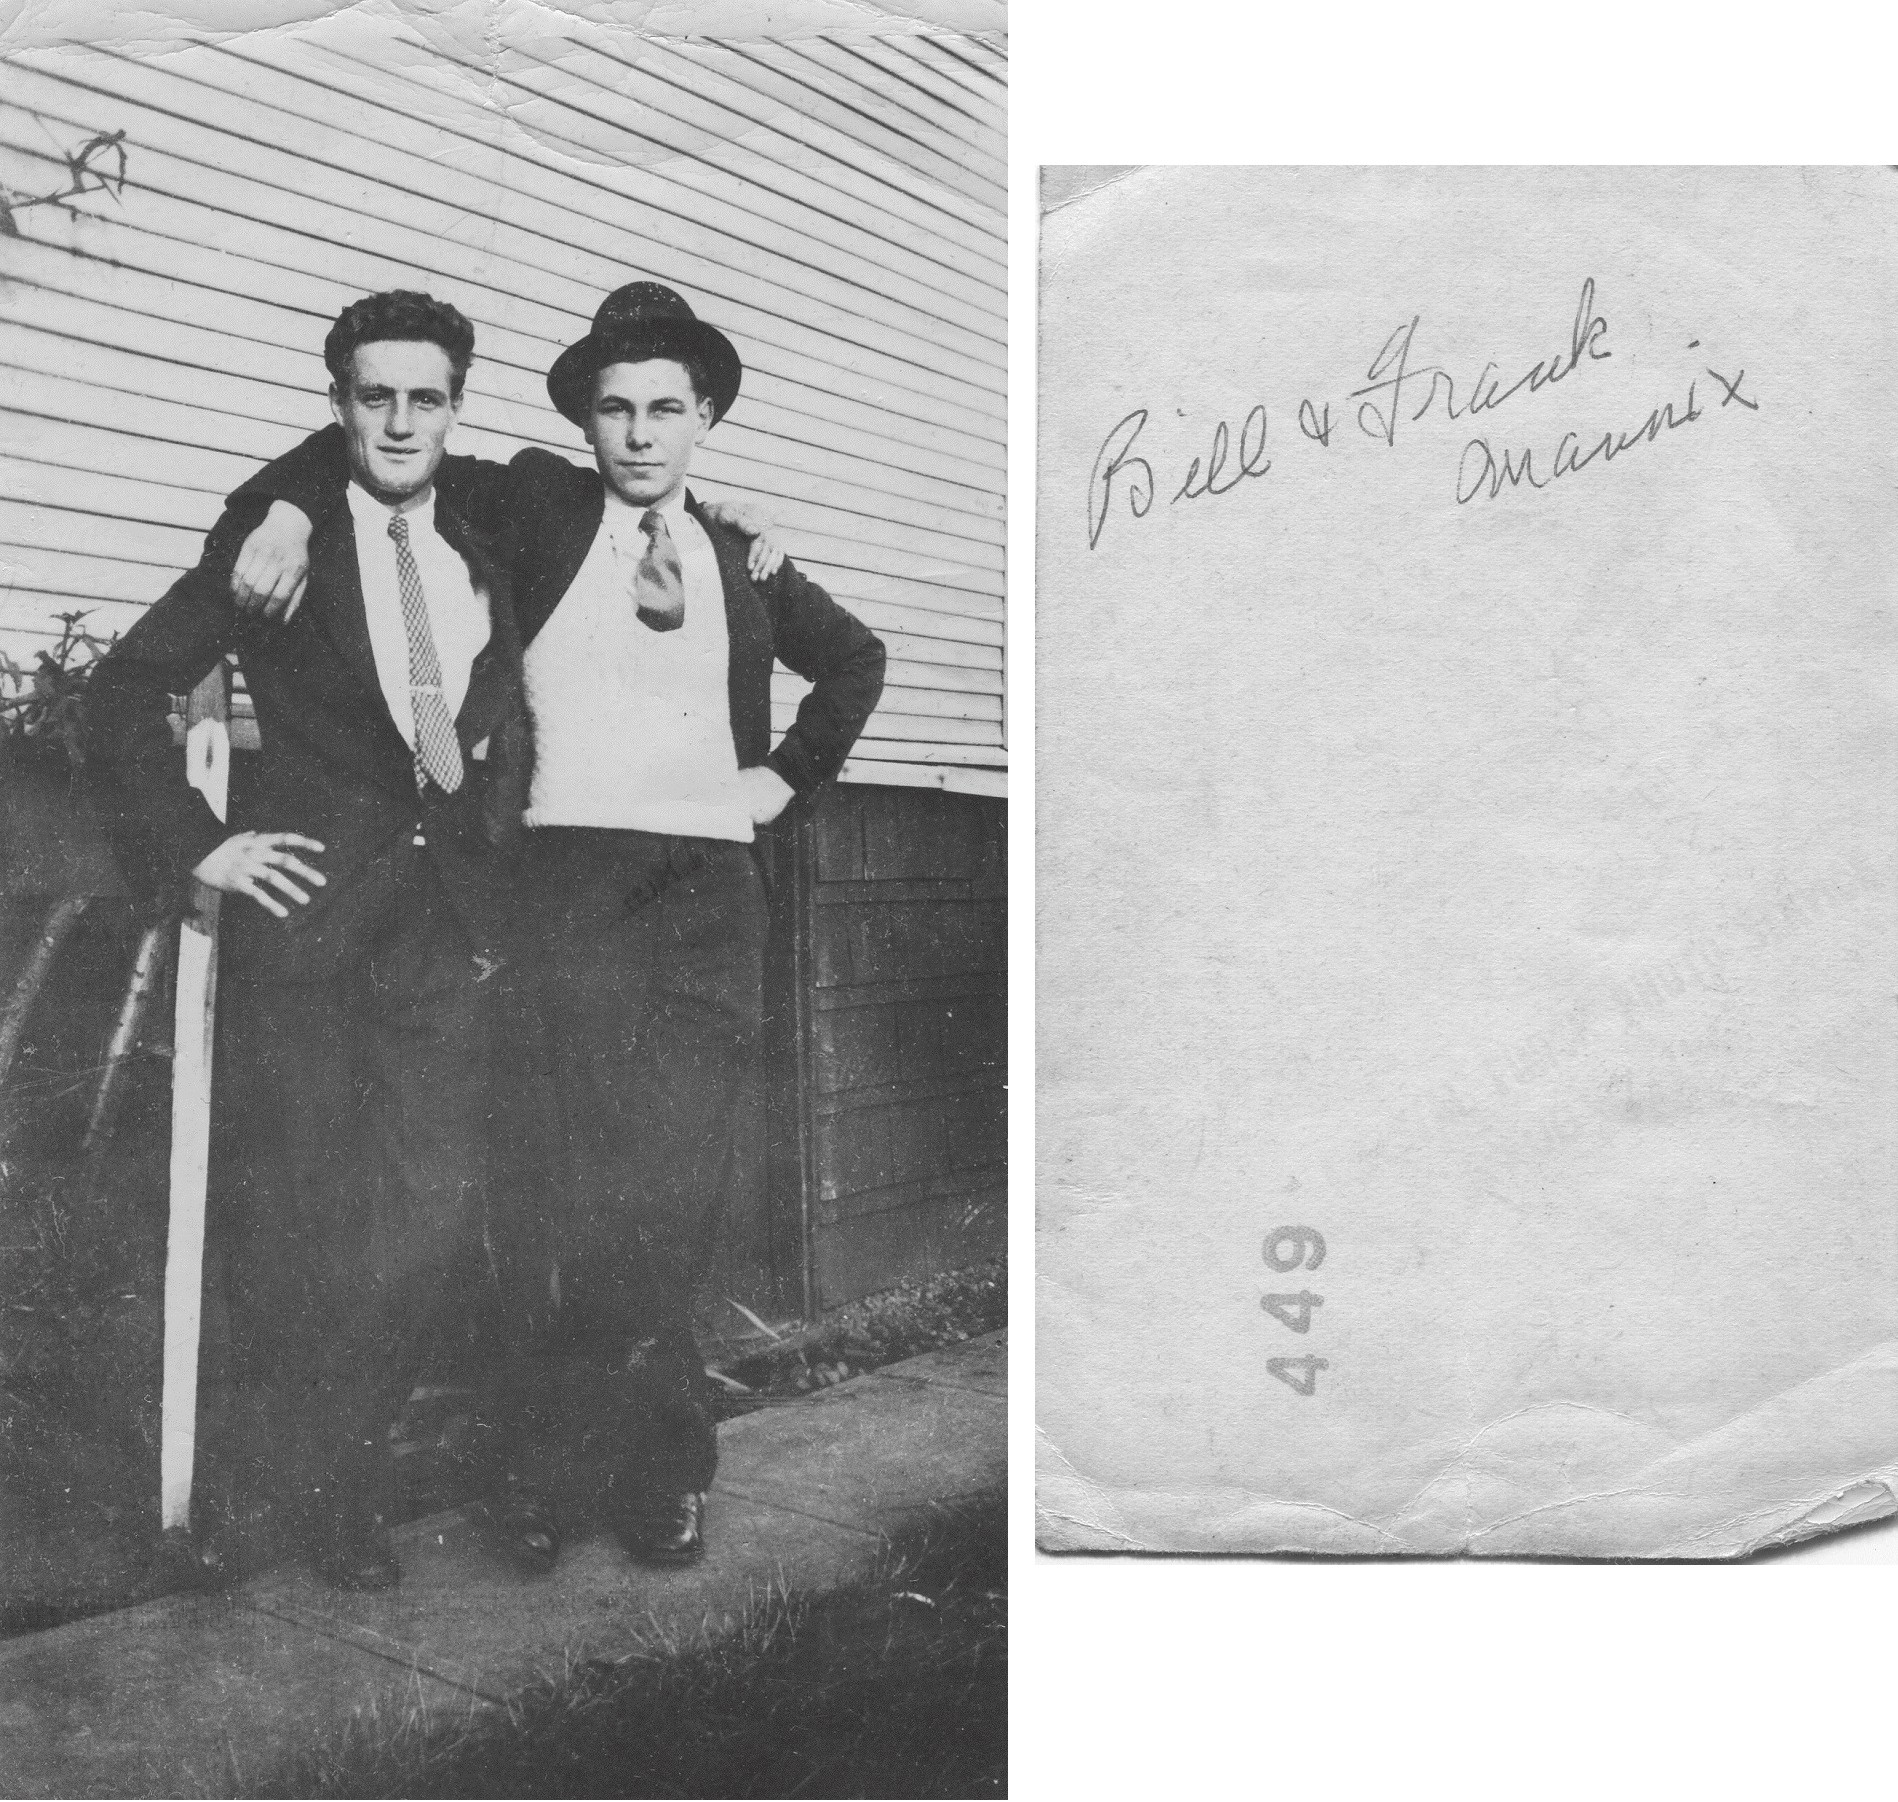 Bill & Frank
Mannix
449